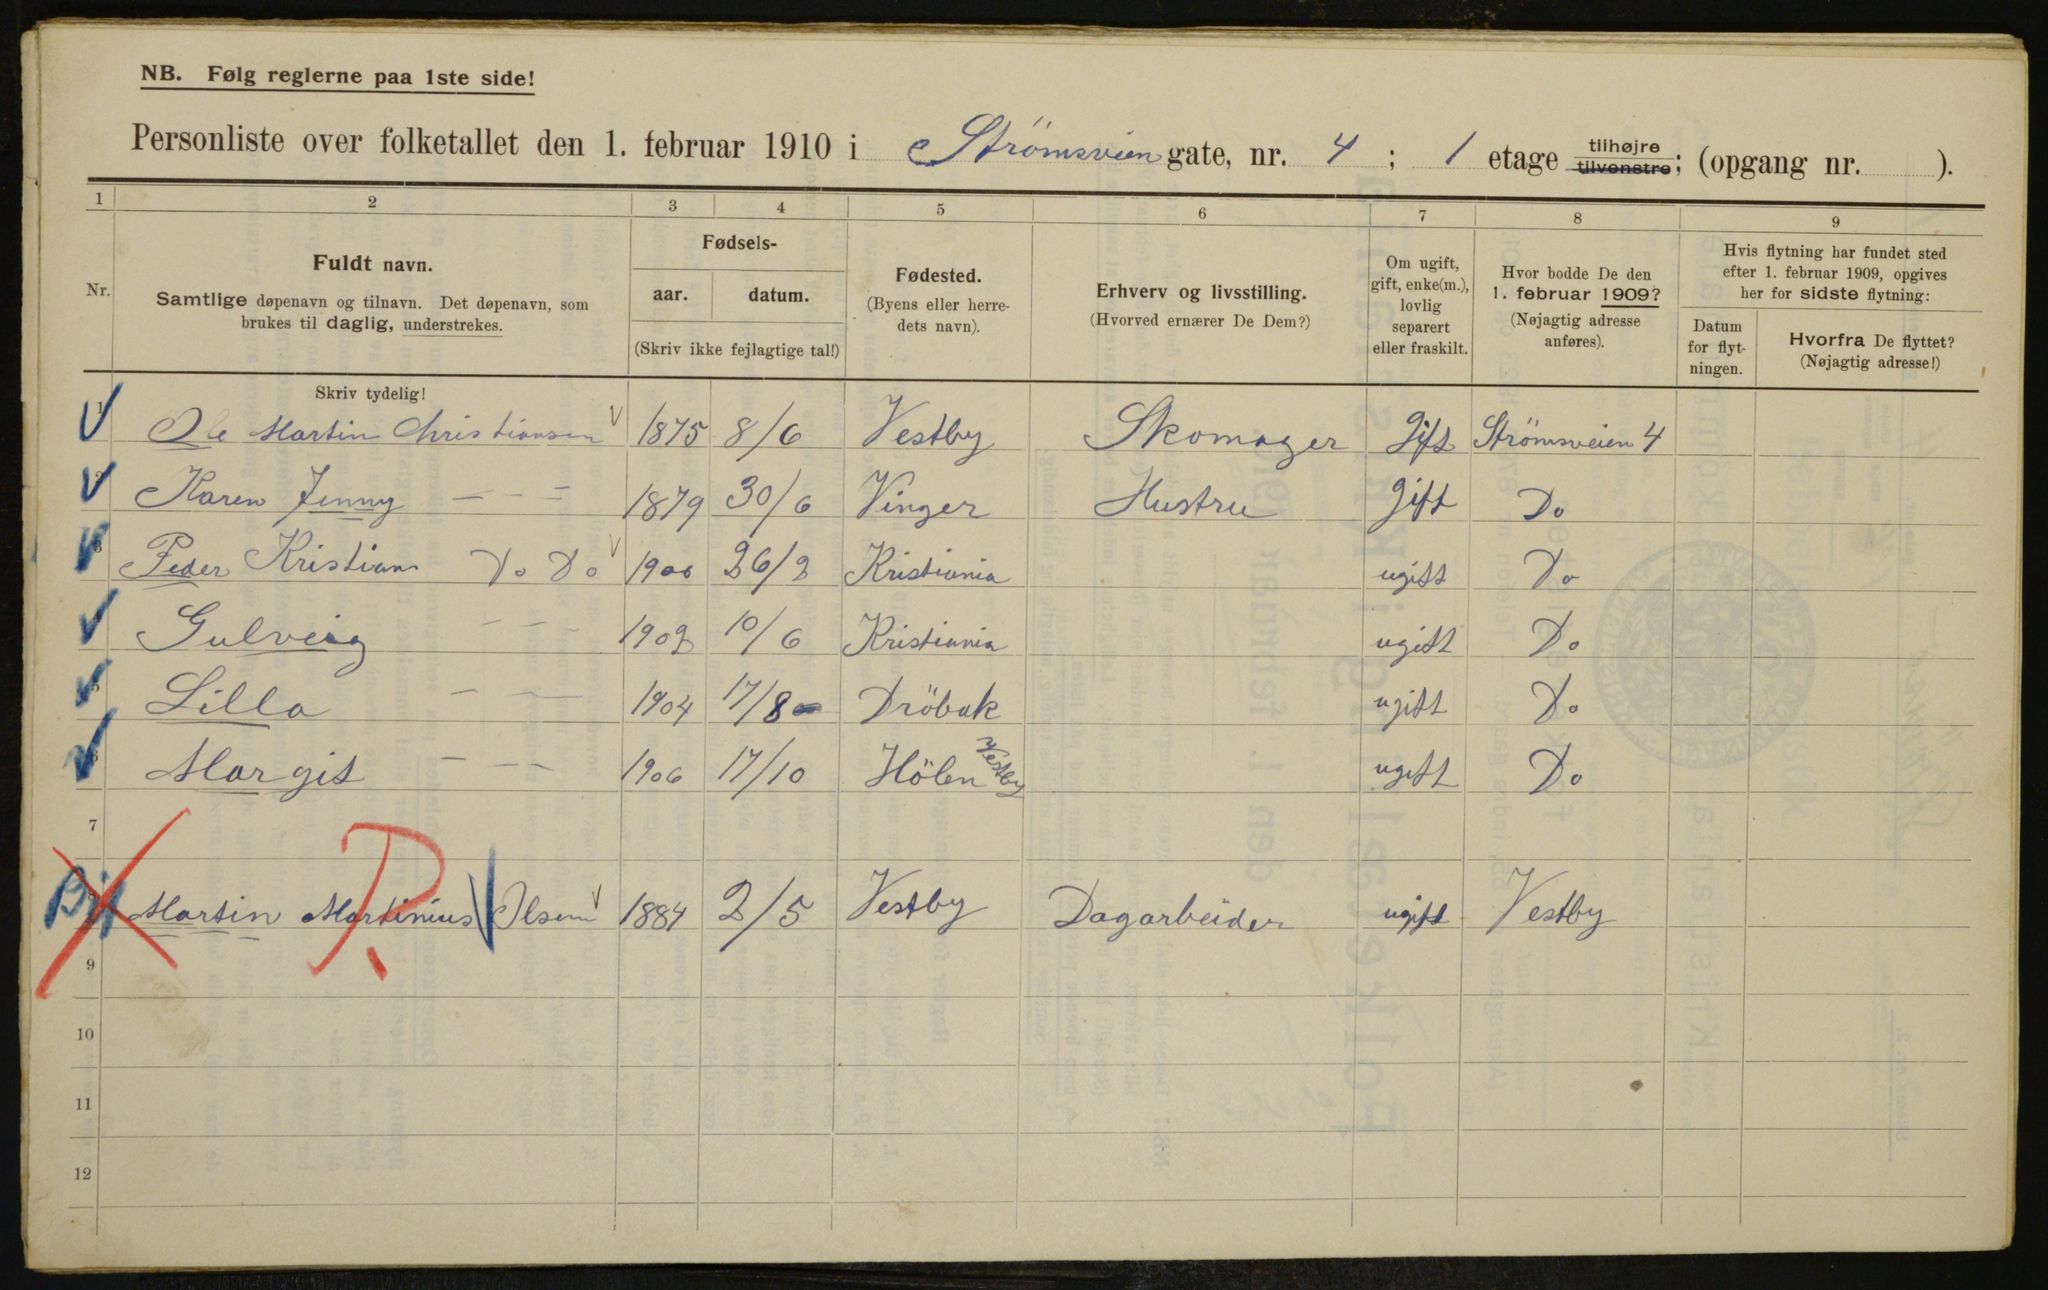 NB. Følg reglerne paa 1ste side!
Personliste over folketallet den 1. februar 1910 i Strömsveien gate, nr. 4 ; 1 etage tilhøjre tilvenstre; (opgang nr. ).
1 2 3 4 5 6 7 8 9
Nr.
Fuldt navn.
Samtlige døpenavn og tilnavn. Det døpenavn, som
brukes til daglig, understrekes.
Fødsels-
aar. datum.
(Skriv ikke fejlagtige tal!)
Fødested.
(Byens eller herre-
dets navn).
Erhverv og livsstilling.
(Hvorved ernærer De Dem?)
Om ugift,
gift, enke(m.),
lovlig
separert
eller fraskilt.
Hvor bodde De den
1. februar 1909?
(Nøjagtig adresse
anføres).
Hvis flytning har fundet sted
efter 1. februar 1909, opgives
her for sidste flytning:
Datum
for flyt-
ningen.
Hvorfra De flyttet?
(Nøjagtig adresse!)
Skriv tydelig!
1 Ole Martin Christiansen 1875 8/6 Vestby Skomager Gift Strömsveien 4
2 Karen Jenny — — = 1879 30/6 Vinger Hustru Gift Do
3 Peder Kristian Do Do 1900 26/2 Kristiania ugift Do
Gulveig — — — 1902 10/6 Kristiania ugift Do
5 Lilla — — — 1904 17/8 Dröbak ugift Do
6 Margit — — — 1906 17/10 Hölen Vestby ugift Do
7
8 Martin Martinius Olsen 1884 2/5 Vestby Dagarbeider ugift Vestby
9
10
11
12